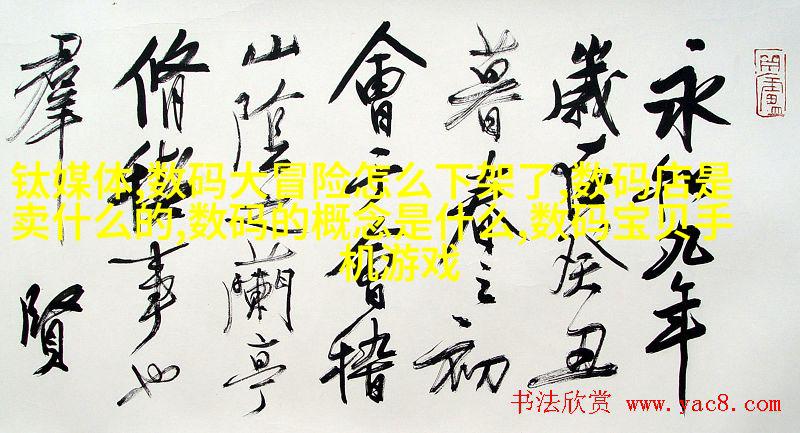 永和九年
歲在癸丑
暮春之初
會于會稽
山陰之蘭亭
脩稧事也
羣賢
钛媒体,数码大冒险怎么下架了,数码店是
卖什么的,数码的概念是什么,数码宝贝手
机游戏
书法欣赏 www.yac8.com